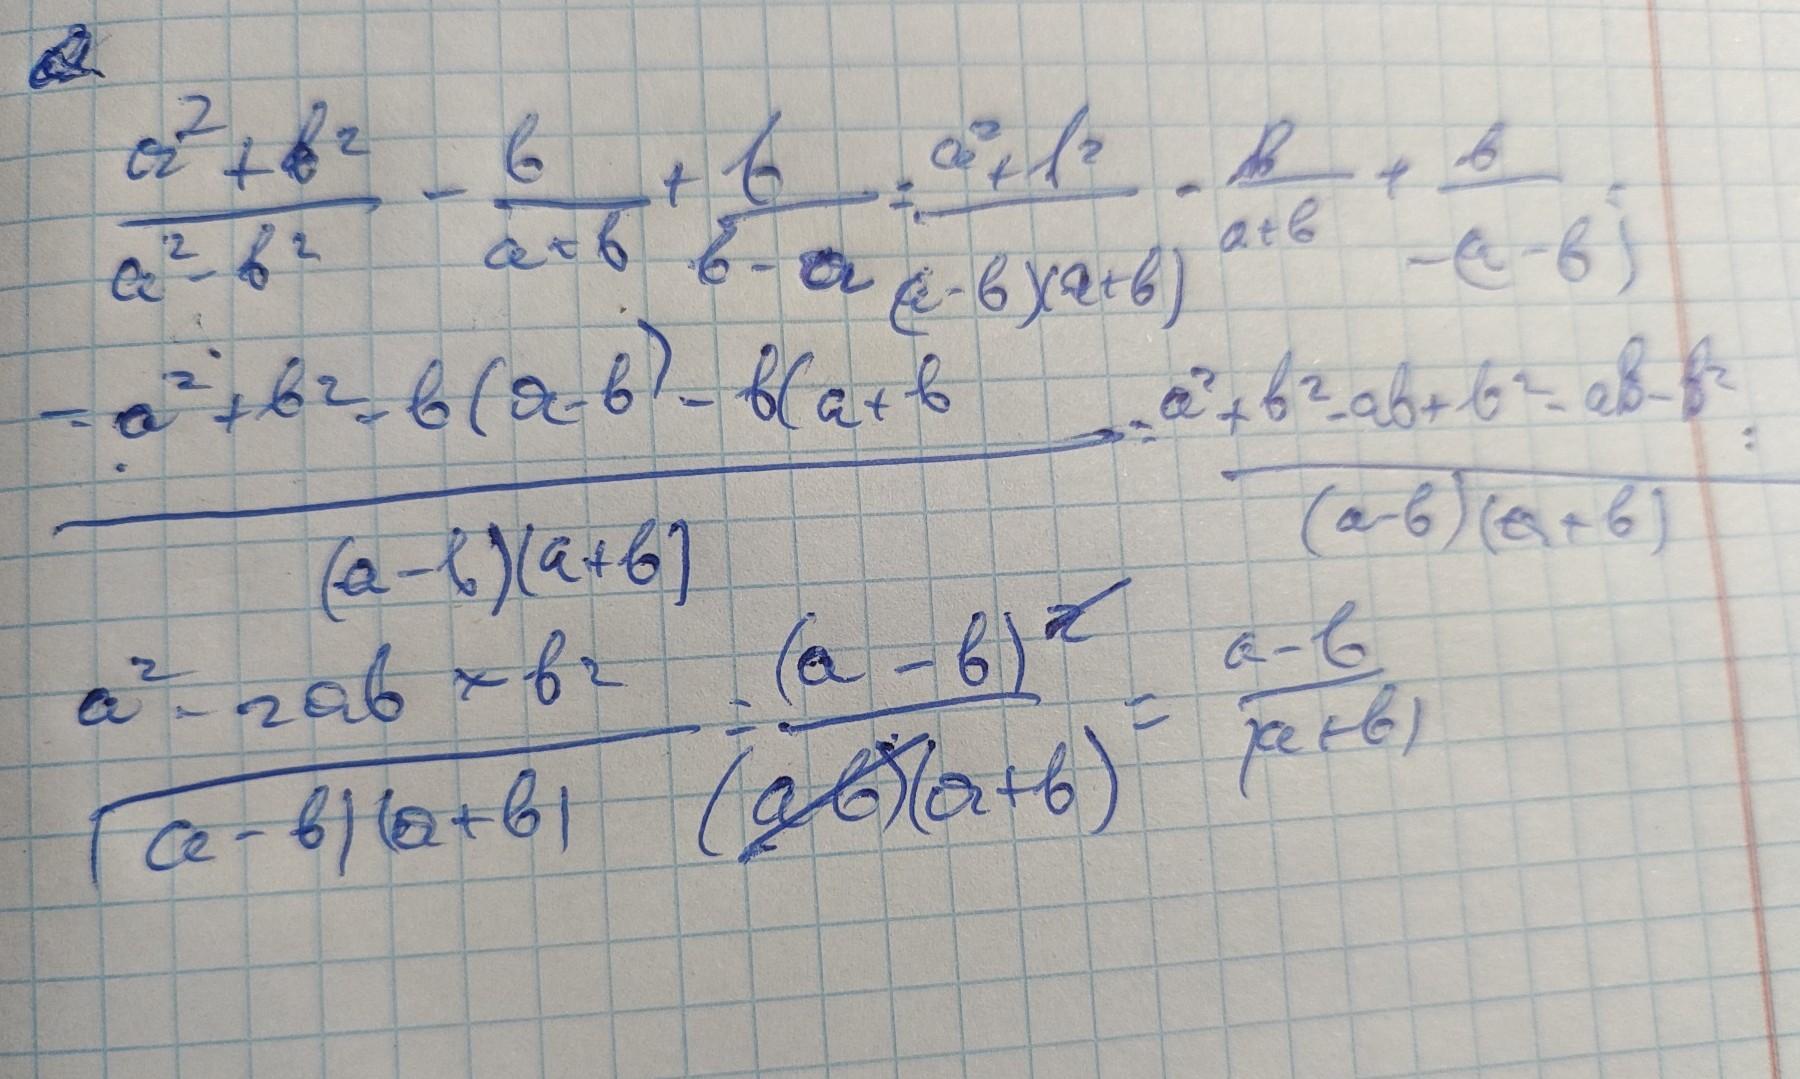 (a² + b²)/(a² - b²) - b/(a + b) + b/(b - a) = (a² + b²)/((a - b)(a + b)) - b/(a + b) + b/(-(a - b)) =
= (a² + b² - b(a - b) - b(a + b)/((a - b)(a + b)) = (a² + b² - ab + b² - ab - b²)/((a - b)(a + b)) =
(a² - 2ab + b²)/((a - b)(a + b)) = (a - b)²/((a - b)(a + b)) = (a - b)/(a + b)